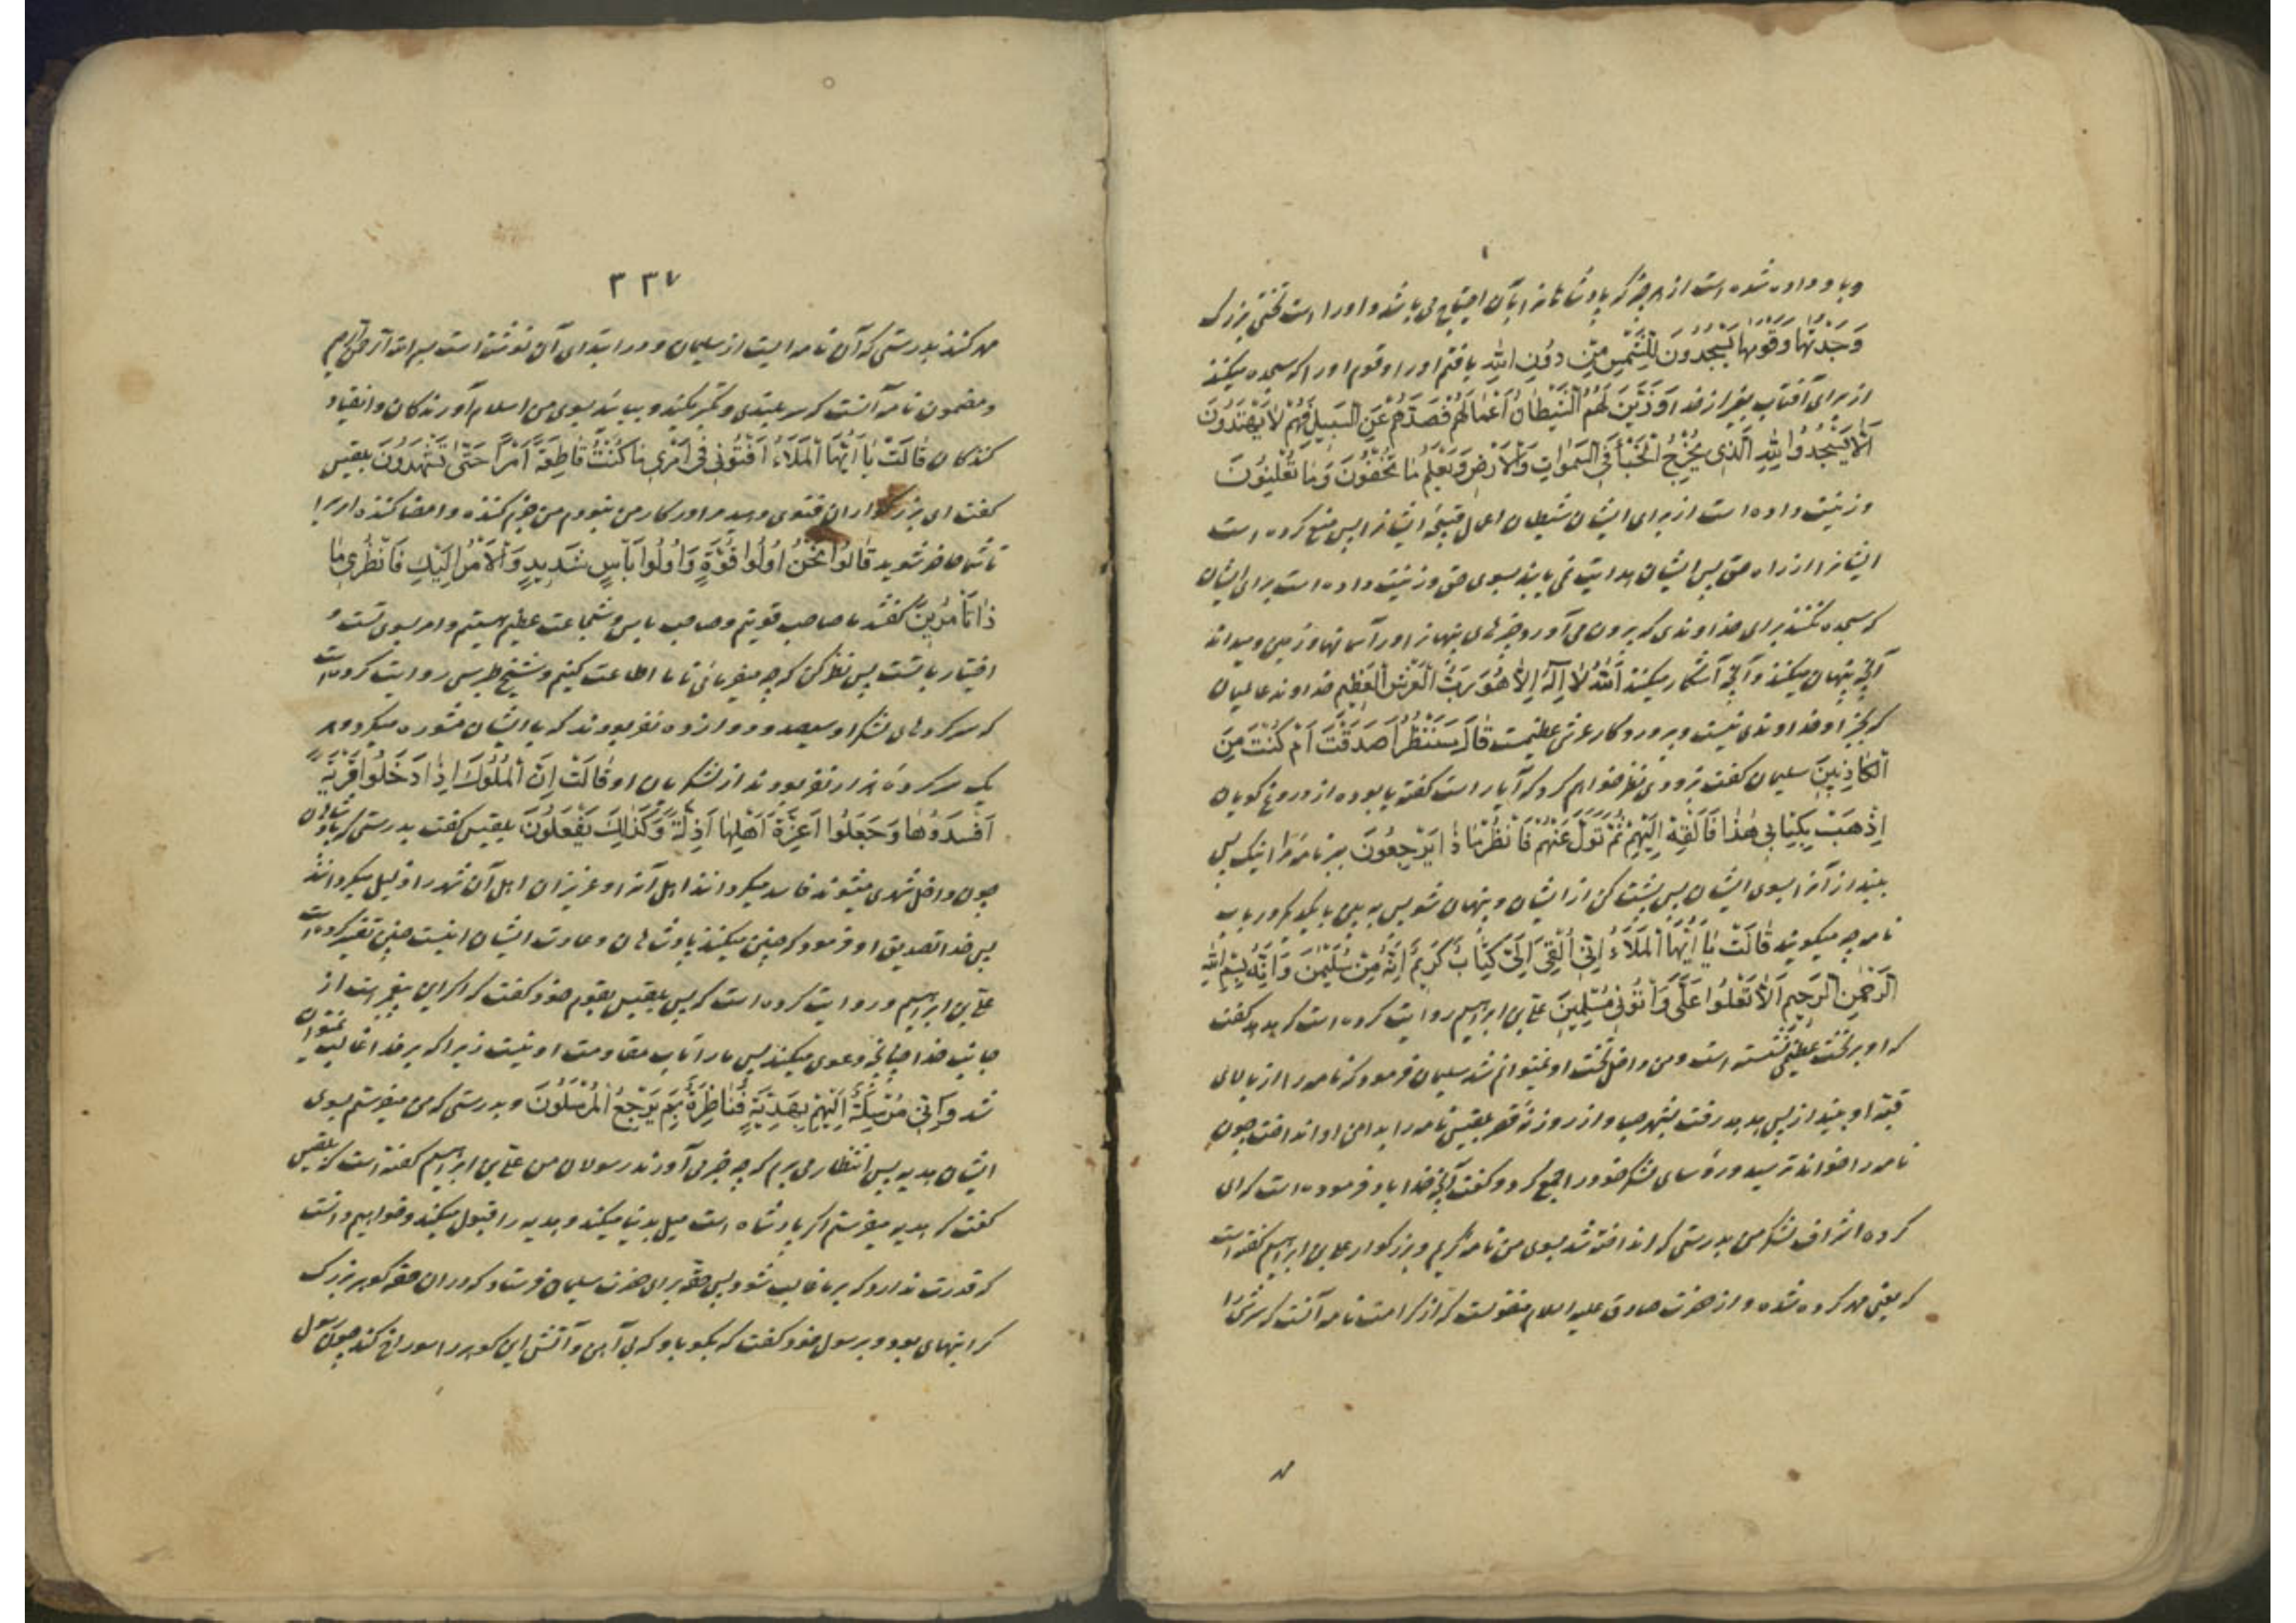 و باو داده شده است از هر چیز که پادشاهانرا بآن احتیاج می باشد و او را است تختی بزرک
وَجَدْتُهَا وَقَوْمَهَا يَسْجُدُونَ لِلشَّمْسِ مِنْ دُونِ اللّٰهِ یافتم او را و قوم او را که سجده میکنند
از برای آفتاب بغیر از خدا وَزَيَّنَ لَهُمُ الشَّيْطَانُ أَعْمَالَهُمْ فَصَدَّهُمْ عَنِ السَّبِيلِ فَهُمْ لَا يَهْتَدُونَ
أَلَّا يَسْجُدُوا لِلّٰهِ الَّذِي يُخْرِجُ الْخَبْأَ فِي السَّمٰوَاتِ وَالْأَرْضِ وَيَعْلَمُ مَا تُخْفُونَ وَمَا تُعْلِنُونَ
و زینت داده است از برای ایشان شیطان اعمال قبیحهٔ ایشانرا پس منع کرده است
ایشانرا از راه حق پس ایشان هدایت نمی یابند بسوی حق و زینت داده است برای ایشان
که سجده نکنند برای خداوندی که بیرون می آورد چیزهای پنهانرا در آسمانها و زمین و میداند
آنچه پنهان میکنند و آنچه آشکار میکنند اَللّٰهُ لَا إِلٰهَ إِلَّا هُوَ رَبُّ الْعَرْشِ الْعَظِيمِ خداوند عالمیان
که بجز او خداوندی نیست و پروردکار عرش عظیمست قَالَ سَنَنْظُرُ أَصَدَقْتَ أَمْ كُنْتَ مِنَ
الْكَاذِبِينَ سلیمان کفت بزودی نظر خواهم کرد که آیا راست کفتهٔ یا بودهٔ از دروغ کویان
اِذْهَبْ بِكِتَابِي هٰذَا فَأَلْقِهْ إِلَيْهِمْ ثُمَّ تَوَلَّ عَنْهُمْ فَانْظُرْ مَاذَا يَرْجِعُونَ ببر نامهٔ مرا اینک پس
بینداز آنرا بسوی ایشان پس پشت کن از ایشان و پنهان شو پس به بین با یکدیکر در باب
نامه چه میکویند قَالَتْ يَا أَيُّهَا الْمَلَؤُ إِنِّي أُلْقِيَ إِلَيَّ كِتَابٌ كَرِيمٌ إِنَّهُ مِنْ سُلَيْمٰنَ وَإِنَّهُ بِسْمِ اللّٰهِ
الرَّحْمٰنِ الرَّحِيمِ أَلَّا تَعْلُوا عَلَيَّ وَأْتُونِي مُسْلِمِينَ علی بن ابراهیم روایت کرده است که هدهد کفت
که او بر تخت عظیمی نشسته است و من داخل تخت او نمیتوانم شد سلیمان فرمود که نامه را از بالای
قبهٔ او بینداز پس هدهد رفت بشهر سبا و از روزنهٔ قصر بلقیس نامه را بدامن او انداخت چون
نامه را خواند ترسید و رؤسای لشکر خود را جمع کرد و کفت آنچه خدا یاد فرموده است که ای
کروه اشراف لشکر من بدرستی که انداخته شد بسوی من نامهٔ کریم و بزرکوار علی بن ابراهیم کفته است
که یعنی مهر کرده شده و از حضرت صادق علیه السلام منقولست که از کرامت نامه آنست که سرش را
مهر
٣٣٧
مهر کنند بدرستی که آن نامه ایست از سلیمان و در ابتدای آن نوشته است بسم الله الرحمن الرحیم
و مضمون نامه آنست که سربلندی و تکبر مکنید و بیایید بسوی من اسلام آورندکان و انقیاد
کنندکان قَالَتْ يَا أَيُّهَا الْمَلَؤُ أَفْتُونِي فِي أَمْرِي مَا كُنْتُ قَاطِعَةً أَمْرًا حَتّٰى تَشْهَدُونِ بلقیس
کفت ای بزرکواران فتوی دهید مرا در کار من نبودم من جزم کننده و امضا کننده امریرا
تا شما حاضر شوید قَالُوا نَحْنُ أُولُوا قُوَّةٍ وَأُولُوا بَأْسٍ شَدِيدٍ وَالْأَمْرُ إِلَيْكِ فَانْظُرِي مَا
ذَا تَأْمُرِينَ کفتند ما صاحب قوتیم و صاحب باس و شجاعت عظیم هستیم و امر بسوی تست و
اختیار با تست پس نظر کن که چه میفرمائی تا ما اطاعت کنیم و شیخ طبرسی روایت کرده است
که سرکردهای لشکر او سیصد و دوازده نفر بودند که با ایشان مشوره میکرد و هر
یک سرکردهٔ هزار نفر بودند از لشکریان او قَالَتْ إِنَّ الْمُلُوكَ إِذَا دَخَلُوا قَرْيَةً
أَفْسَدُوهَا وَجَعَلُوا أَعِزَّةَ أَهْلِهَا أَذِلَّةً وَكَذٰلِكَ يَفْعَلُونَ بلقیس کفت بدرستی که پادشاهان
چون داخل شهری میشوند فاسد میکردانند اهل آنرا و عزیزان اهل آن شهر را ذلیل میکردانند
پس خدا تصدیق او فرمود که چنین میکنند پادشاهان و عادت ایشان اینست چنین تفسیر کرده است
علی بن ابراهیم و روایت کرده است که پس بلقیس بقوم خود کفت که اکر این پیغمبر است از
جانب خدا چنانچه دعوی میکند پس ما را تاب مقاومت او نیست زیرا که بر خدا غالب نمیتوان
شد وَإِنِّي مُرْسِلَةٌ إِلَيْهِمْ بِهَدِيَّةٍ فَنَاظِرَةٌ بِمَ يَرْجِعُ الْمُرْسَلُونَ و بدرستی که من میفرستم بسوی
ایشان هدیه پس انتظار می برم که چه خبر می آورند رسولان من علی بن ابراهیم کفته است که بلقیس
کفت که هدیه میفرستم اکر پادشاه است میل بدنیا میکند و هدیه را قبول میکند و خواهیم دانست
که قدرت ندارد که بر ما غالب شود پس حقهٔ برای حضرت سلیمان فرستاد که در آن حقه کوهر بزرک
کرانبهای بود و برسول خود کفت که بکو باو که بی آهن و آتش این کوهر را سوراخ کند چون رسول